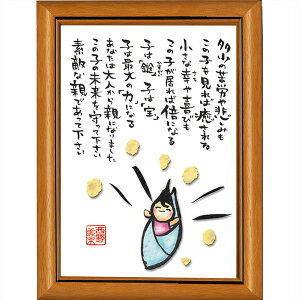 多少の苦労や悲しみも
この子を見れば癒される
小さな幸や喜びも
この子が居れば倍になる
子は鎹 子は宝
子は最大の力になる
あなたは大人から親になりました
この子の未来を守って下さい
素敵な親であって下さい